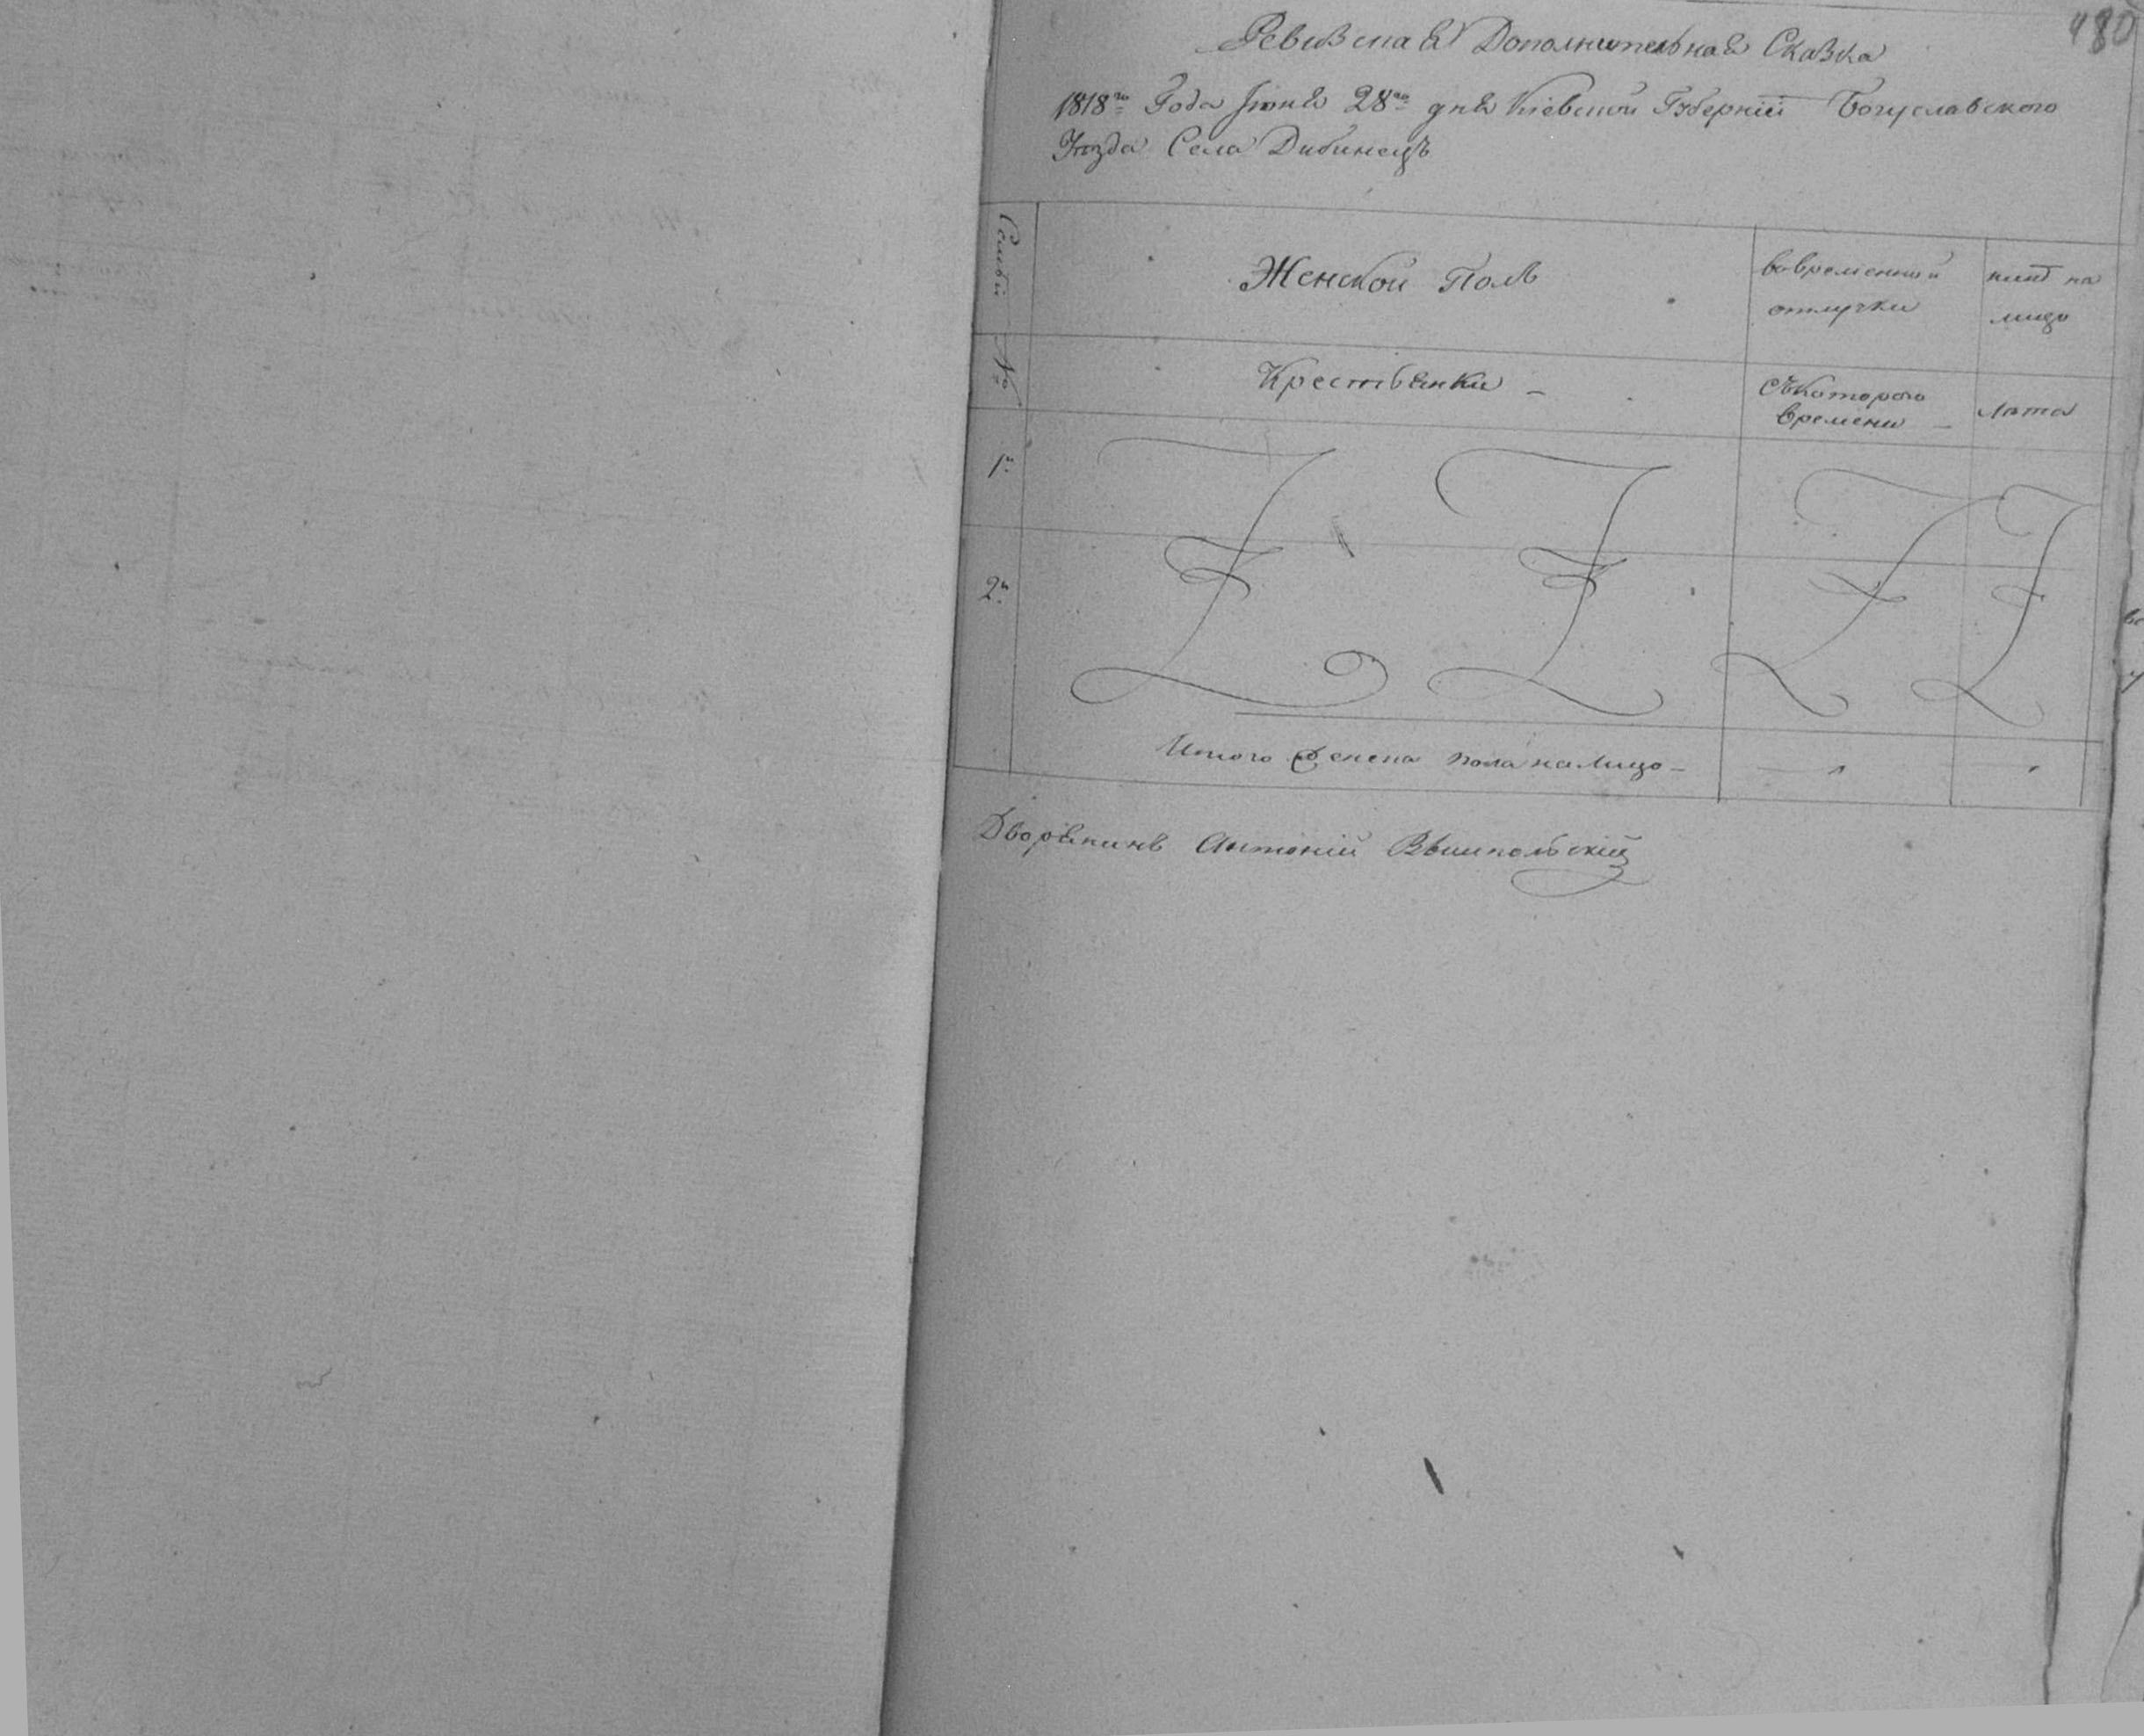 480
Ревизская Дополнительная Сказка
1818го Года Іюня 28го дня Кіевской Губерніи Богуславского
Уезда Села Дибинецъ
Семьи
Женской Полъ
во временной
отлучки
ныне на
лицо
№
Крестьянки
Съкоторого
времени
лета
1й
2й
Итого Женска пола налицо
Дворянинъ Антоній Вышпольскій